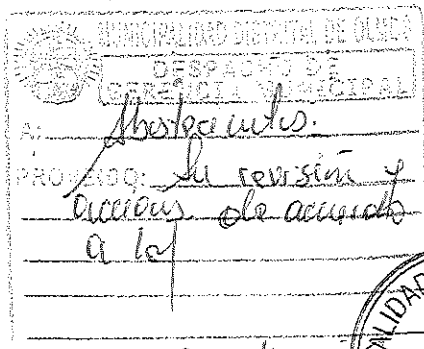 MUNICIPALIDAD DISTRITAL DE OLMOS
DESPACHO DE
GERENCIA MUNICIPAL
A: Abastecimientos.
PROVEIDO: Su revisión y
acciones de acuerdo
a ley
ALIDAD